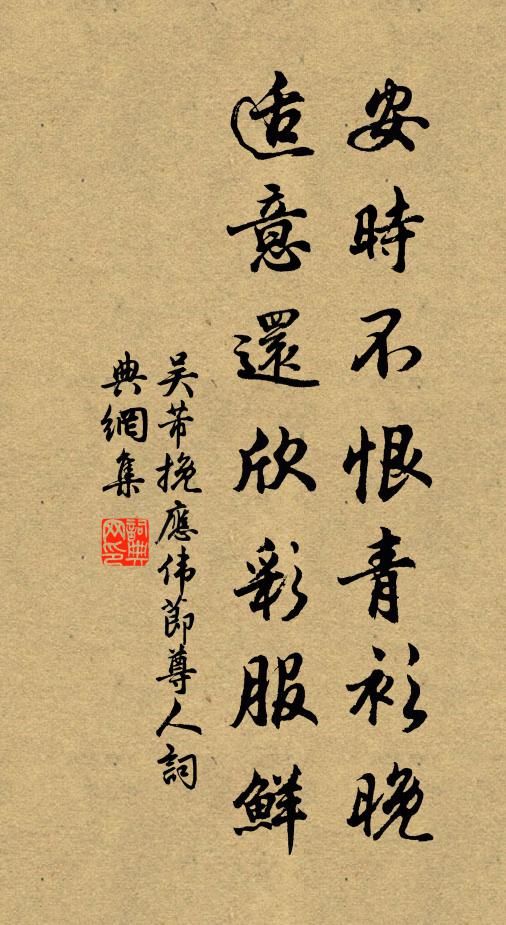 安時不恨青衫晚
適意還欣彩服鮮
吳芾挽應伟節尊人詞
典網集
詞典网印